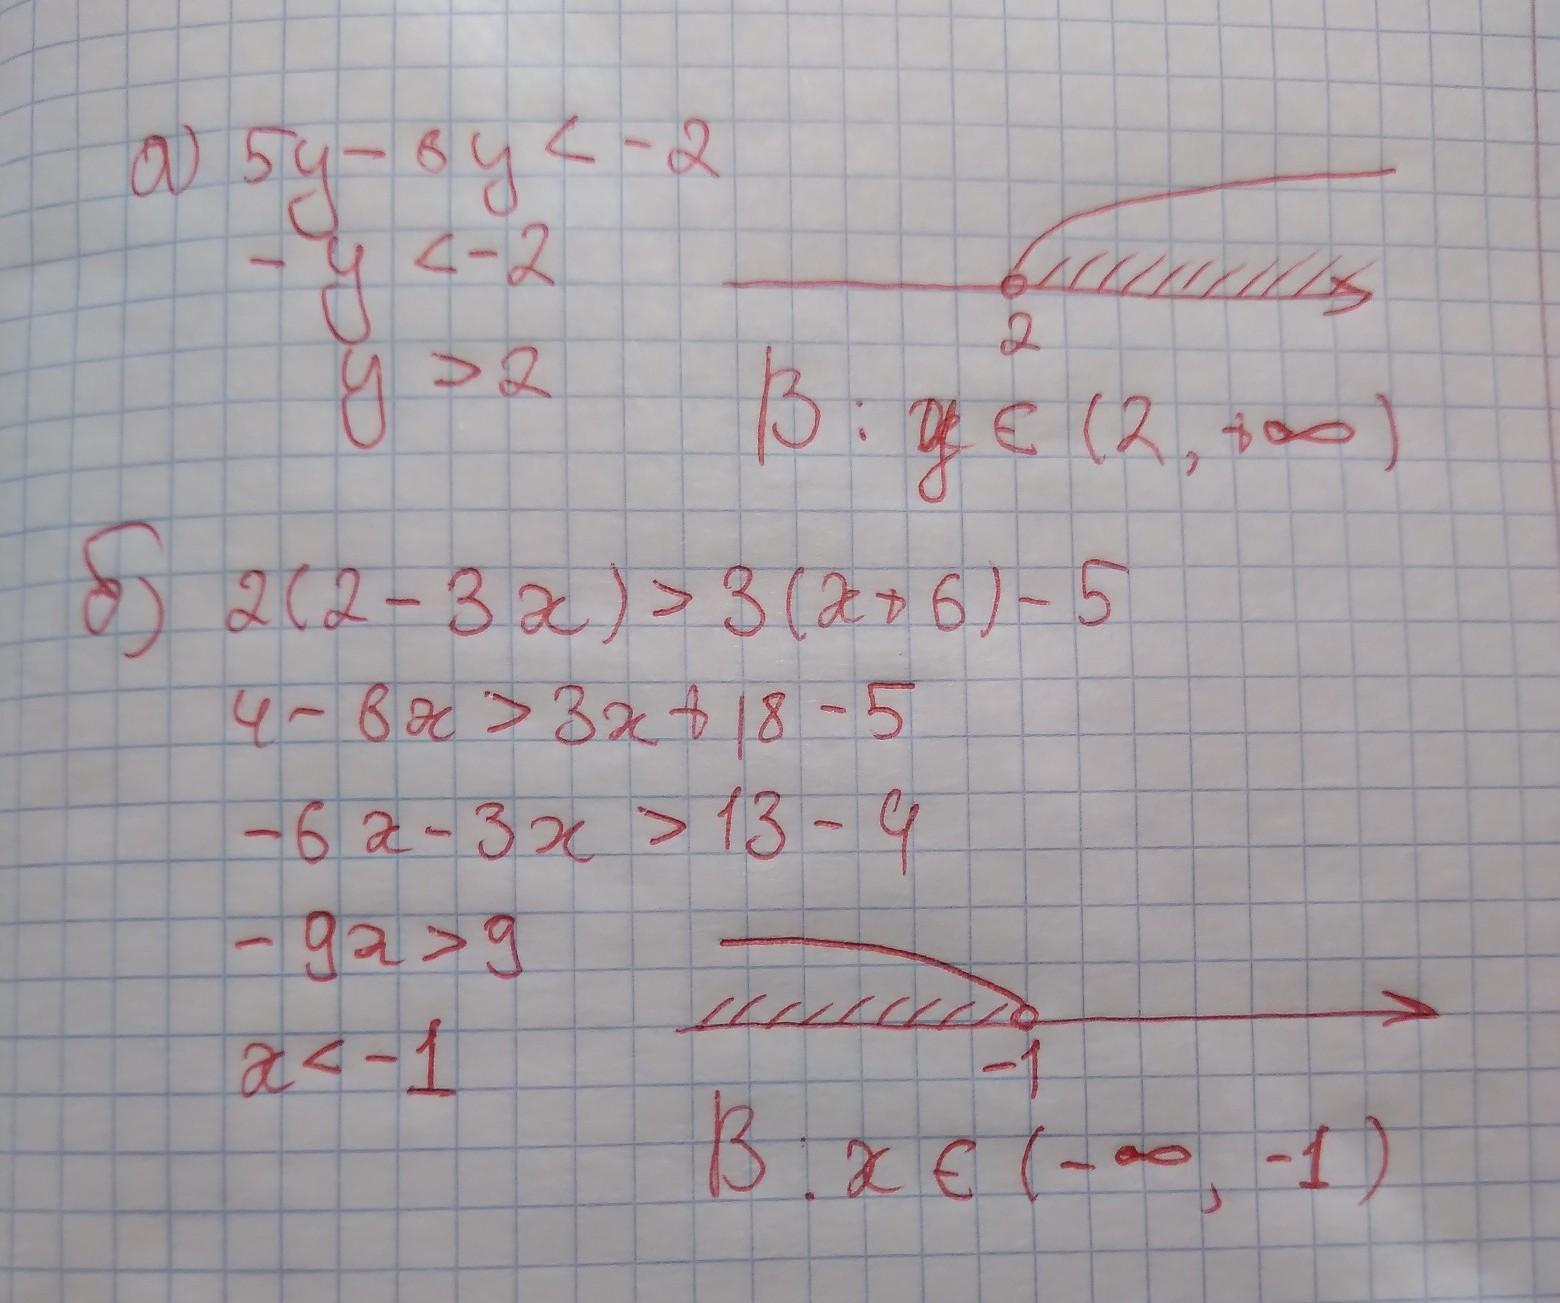 а) 5y - 6y < -2
-y < -2
y > 2
2
В: y ∈ (2, +∞)
б) 2(2 - 3x) > 3(x + 6) - 5
4 - 6x > 3x + 18 - 5
-6x - 3x > 13 - 4
-9x > 9
x < -1
-1
В: x ∈ (-∞, -1)